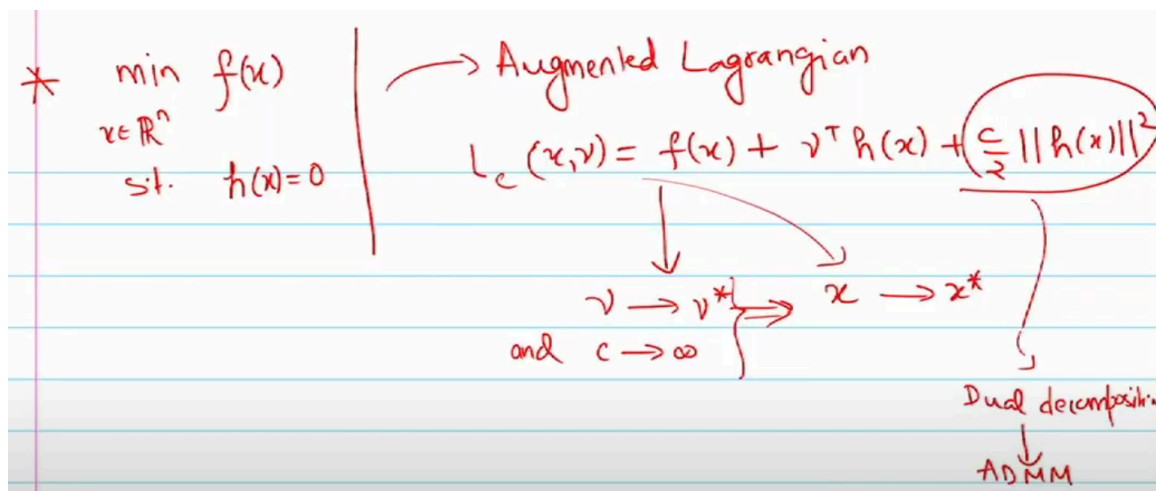 * min f(x)
x∈ℝⁿ
s.t. h(x)=0
→ Augmented Lagrangian
L_c (x,ν) = f(x) + νᵀ h(x) + c/2 ||h(x)||²
ν → ν* } ⇒ x → x*
and c → ∞
Dual decompositi
↓
ADMM